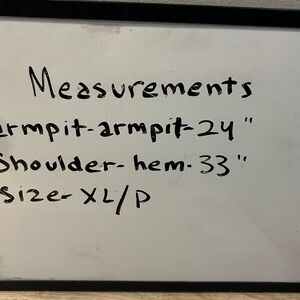 Measurements
armpit-armpit-24"
Shoulder-hem-33"
Size-XL/P